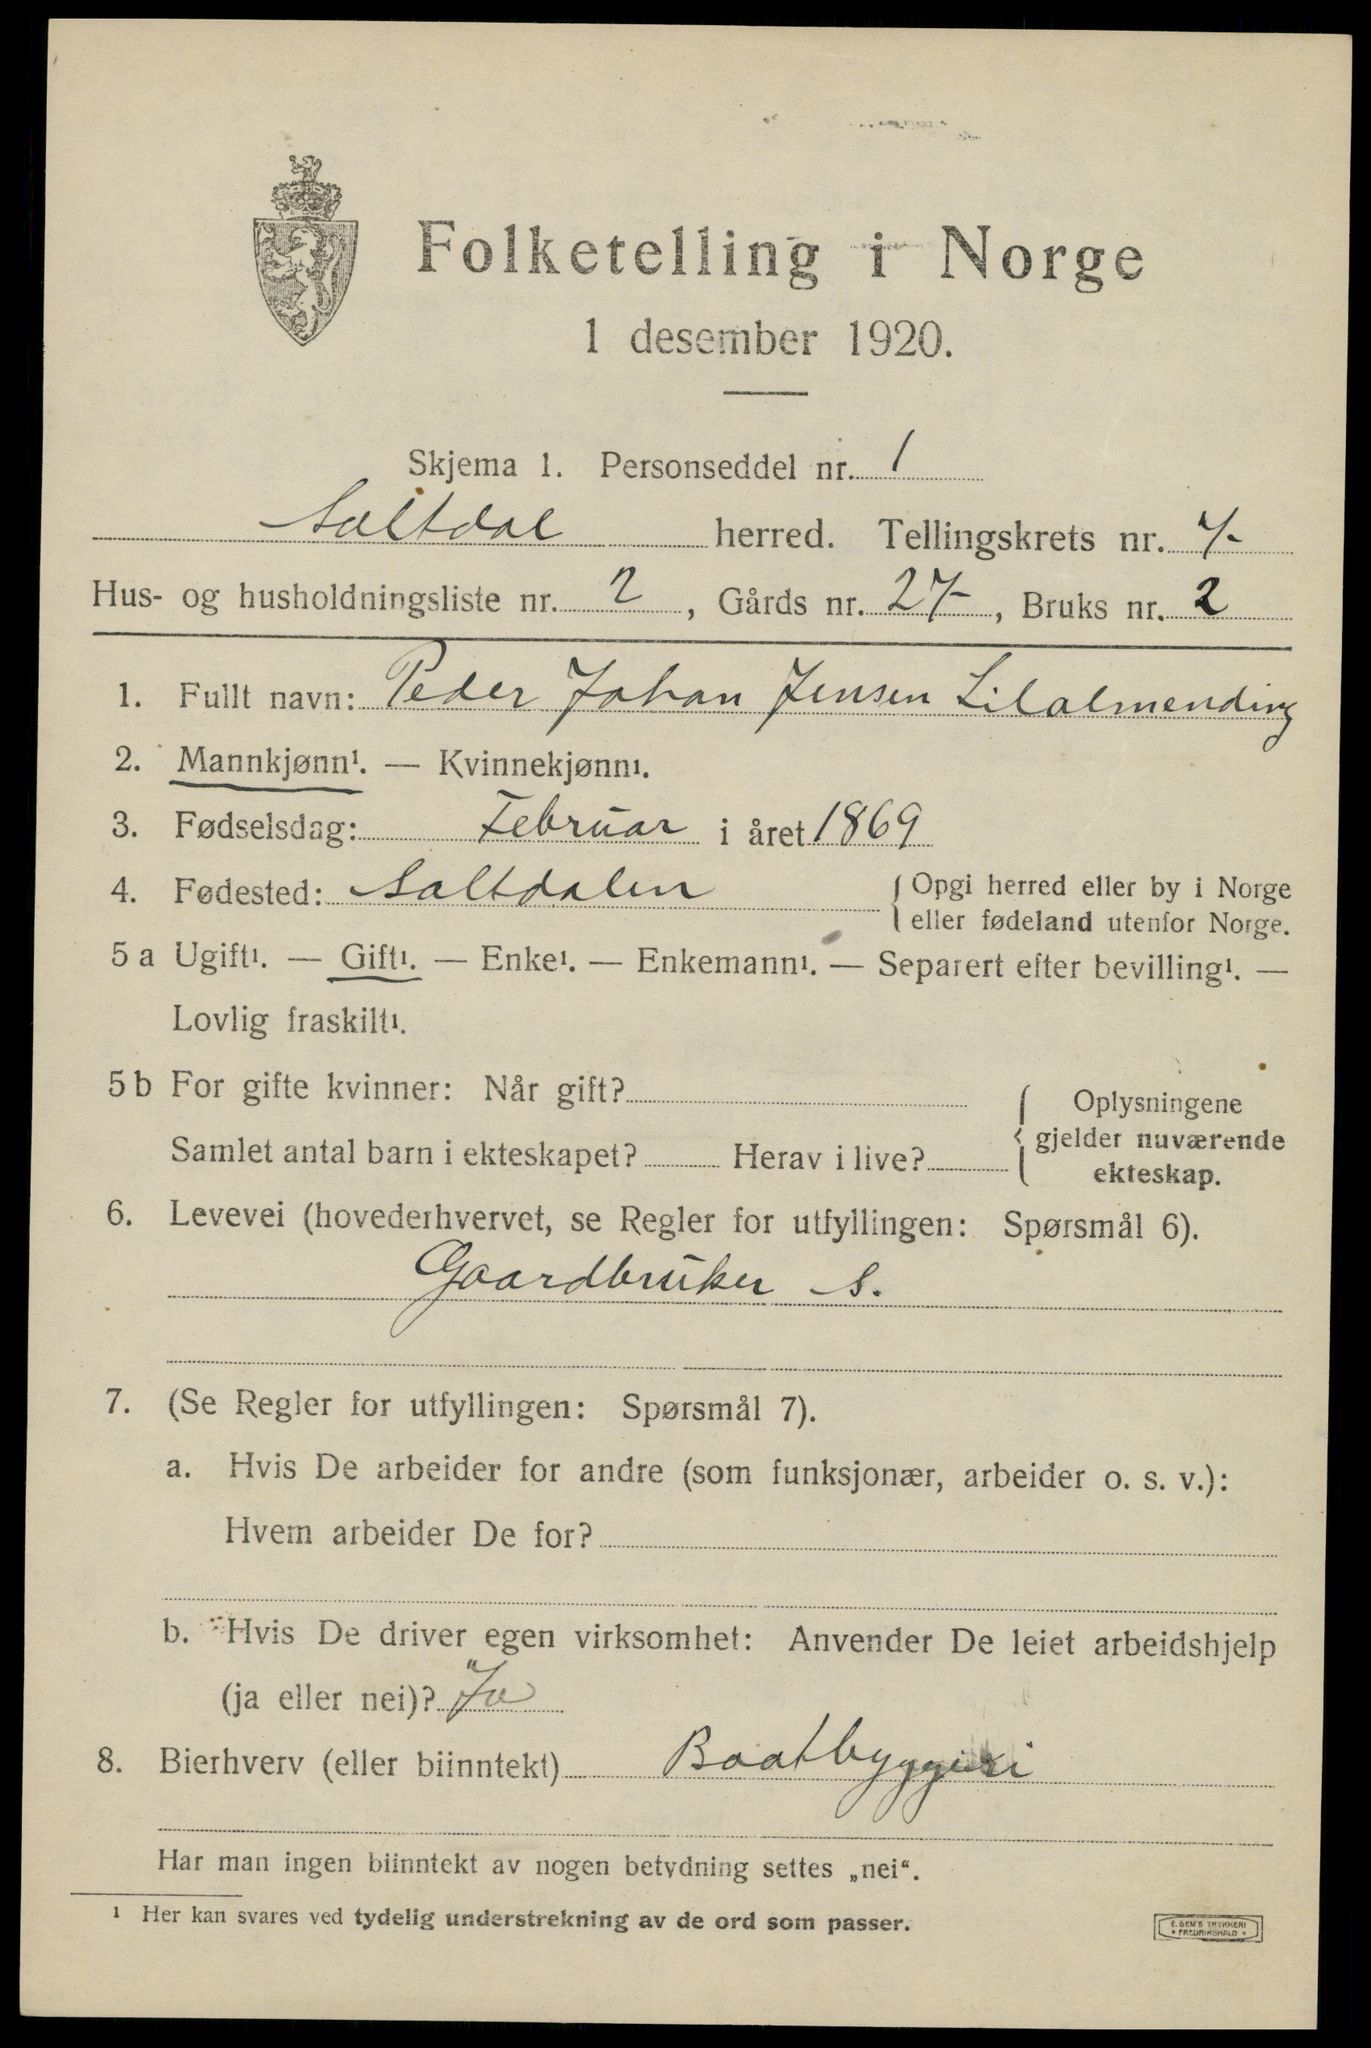 Folketelling i Norge
1 desember 1920.
Skjema 1. Personseddel nr. 1
Saltdal herred. Tellingskrets nr. 7-
Hus- og husholdningsliste nr. 2, Gårds nr. 27-, Bruks nr. 2
1. Fullt navn: Peder Johan Jensen Lilalmending
2. Mannkjønn¹. — Kvinnekjønn¹.
3. Fødselsdag: Februar i året 1869
4. Fødested: Saltdalen { Opgi herred eller by i Norge
eller fødeland utenfor Norge.
5 a Ugift¹. — Gift¹. — Enke¹. — Enkemann¹. — Separert efter bevilling¹. —
Lovlig fraskilt¹.
5 b For gifte kvinner: Når gift?
Samlet antal barn i ekteskapet? Herav i live?
Oplysningene
gjelder nuværende
ekteskap.
6. Levevei (hovederhvervet, se Regler for utfyllingen: Spørsmål 6).
Gaardbruker S.
7. (Se Regler for utfyllingen: Spørsmål 7).
a. Hvis De arbeider for andre (som funksjonær, arbeider o. s. v.):
Hvem arbeider De for?
b. Hvis De driver egen virksomhet: Anvender De leiet arbeidshjelp
(ja eller nei)? "Ja
8. Bierhverv (eller biinntekt) Baatbyggeri
Har man ingen biinntekt av nogen betydning settes „nei“.
¹ Her kan svares ved tydelig understrekning av de ord som passer.
E. SEM'S TRYKKERI
FREDRIKSHALD